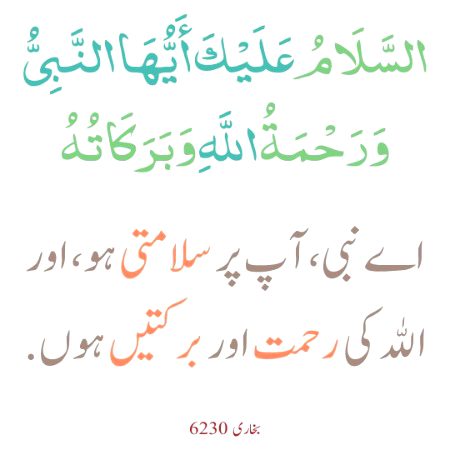 السَّلَامُ عَلَيْكَ أَيُّهَا النَّبِيُّ
وَرَحْمَةُ اللَّهِ وَبَرَكَاتُهُ
اے نبی، آپ پر سلامتی ہو، اور
اللہ کی رحمت اور برکتیں ہوں.
بخاری 6230